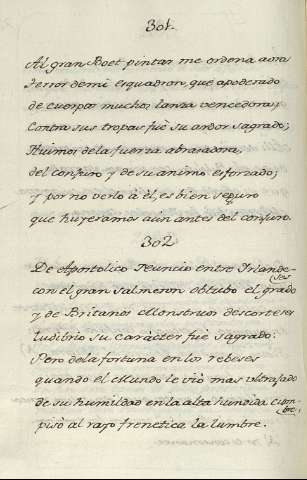 301.
Al gran Boet pintar me ordena aora
Terror de mi esquadron, que apoderado
de cuerpos muchos, lanza vencedora,
Contra sus tropas fuè su ardor sagrado;
Huimos de la fuerza abrasadora,
del conjuro y de su animo esforzado;
y por no verlo à èl, es bien seguro
que huyeramos aún antes del conjuro.
302
De Apostolico Nuncio entre Irlandeses
con el gran Salmeron obtubo el grado
y de Britanos Monstruos descorteses
ludibrio su carácter fuè sagrado:
Pero de la fortuna en los rebeses
quando el Mundo le viò mas ultrajado
de su humildad en la alta hundida cumbre,
pisò al rayo frenetico la lumbre.